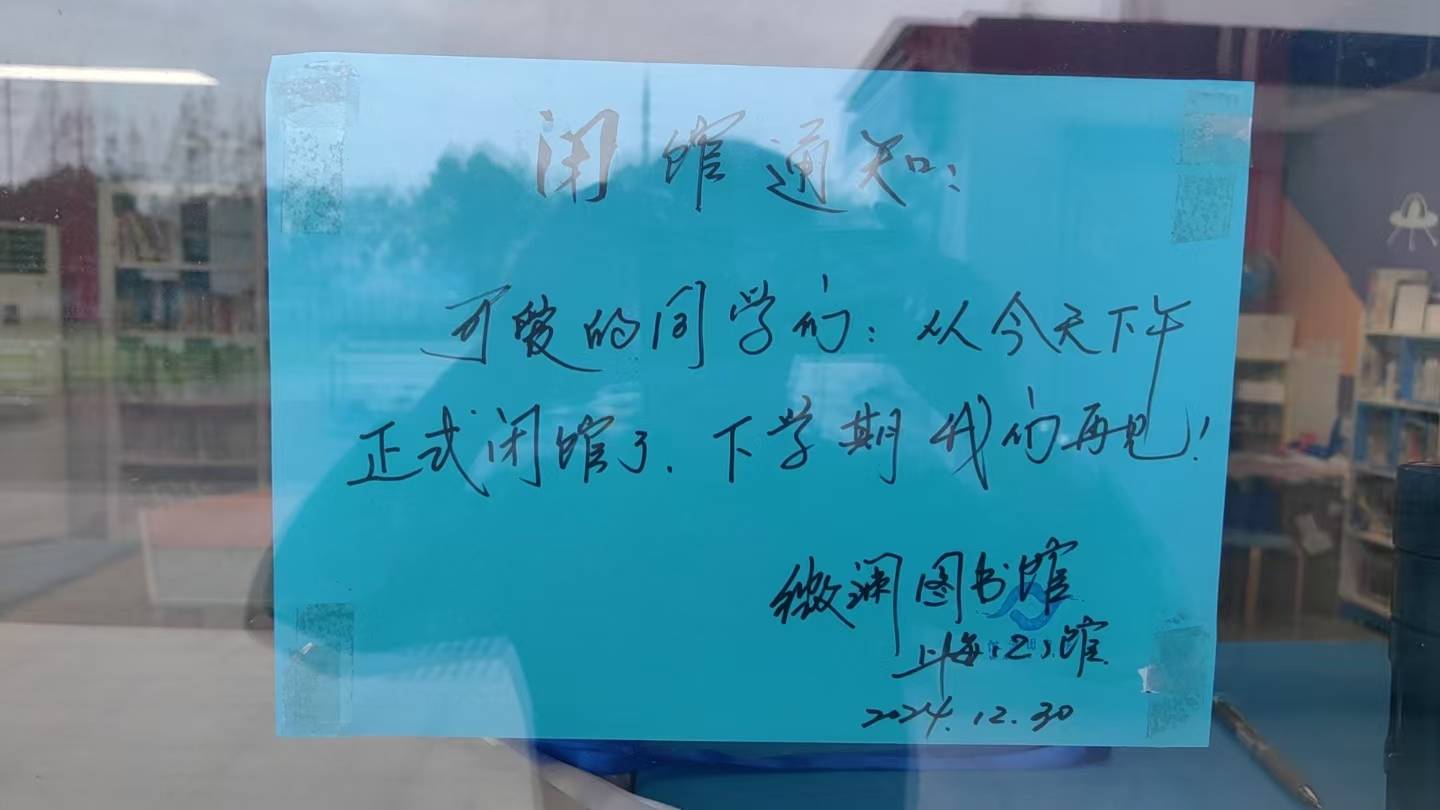 闭馆通知:
可爱的同学们:从今天下午
正式闭馆了.下学期我们再见!
微澜图书馆
上海(2)馆
2024.12.30